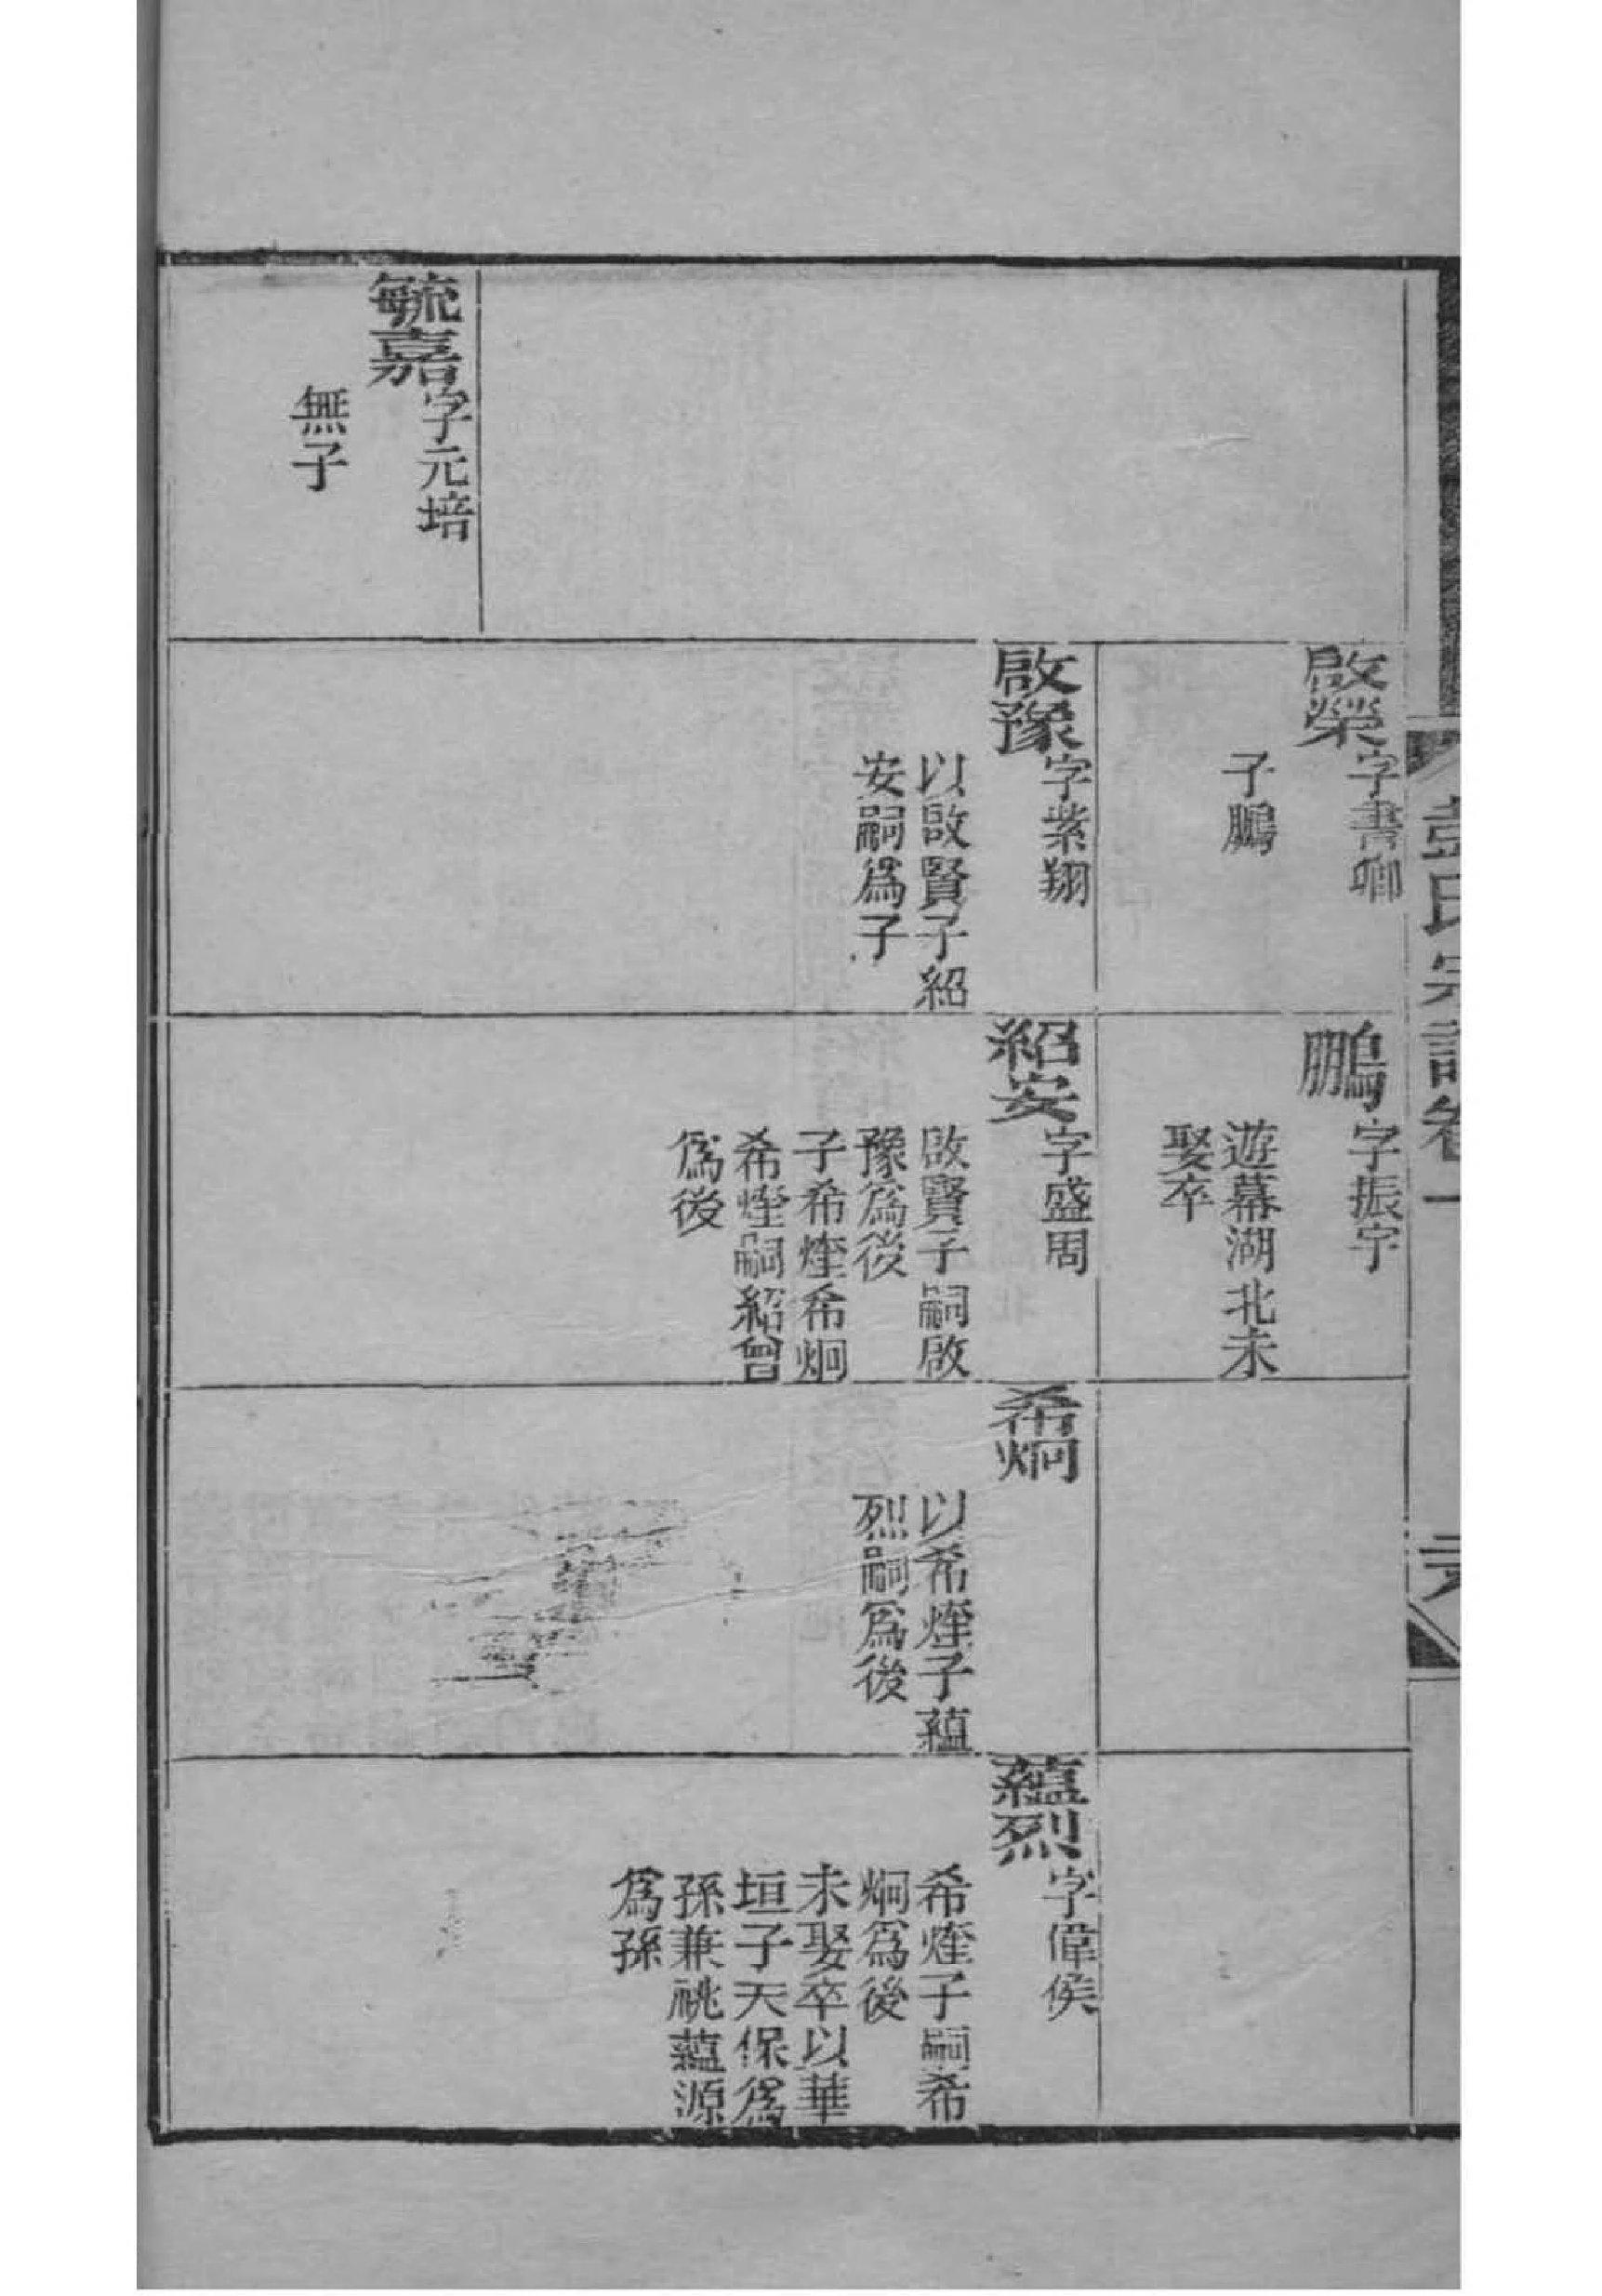 彭氏宗譜卷一
啟榮
字書卿
子鵬
啟豫
字紫翔
以啟賢子紹
安嗣爲子
毓嘉
字元培
無子
鵬
字振宇
遊幕湖北未
娶卒
紹安
字盛周
啟賢子嗣啟
豫爲後
子希煃希炯
希煃嗣紹曾
爲後
希炯
以希煃子蘊
烈嗣爲後
蘊烈
字偉侯
希煃子嗣希
炯爲後
未娶卒以華
垣子天保爲
孫兼祧蘊源
爲孫